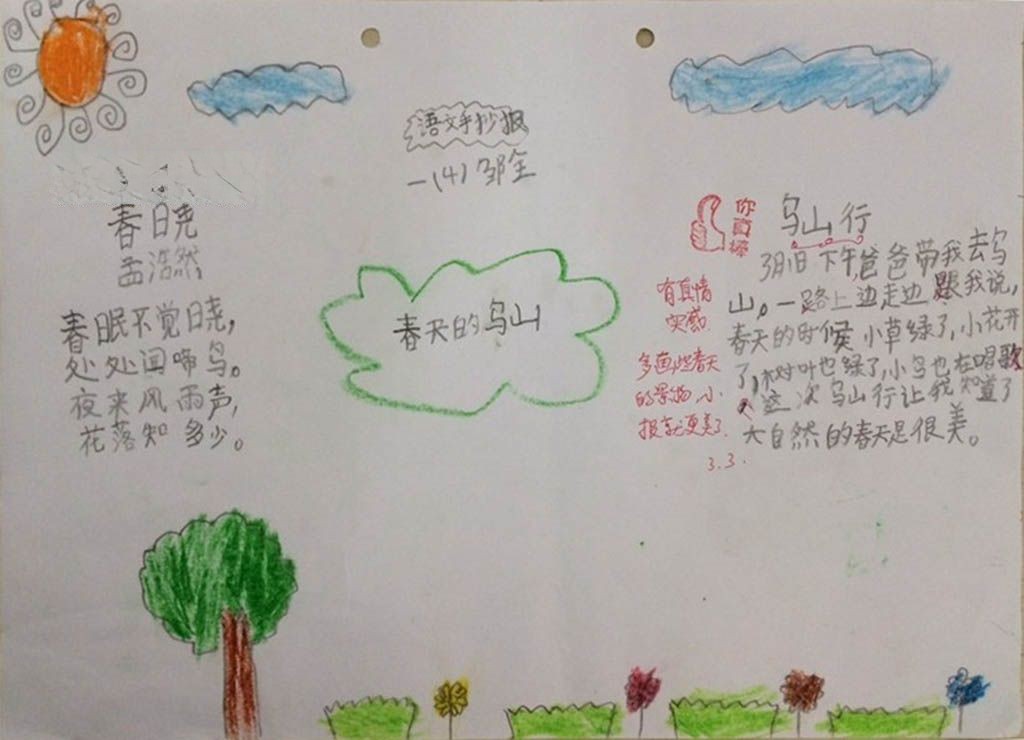 语文手抄报
一(4)邹全
春晓
孟浩然
春眠不觉晓,
处处闻啼鸟。
夜来风雨声,
花落知多少。
春天的乌山
你真棒
乌山行
3月1日下午爸爸带我去乌
山。一路上边走边跟我说,
春天的时候小草绿了,小花开
了,树叶也绿了,小鸟也在唱歌
这次乌山行让我知道了
大自然的春天是很美。
有真情
实感
多画些春天
的景物,小
报就更美了.
3.3.